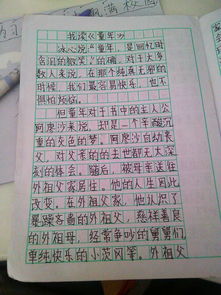 书读《童年》
冰心说"童年,是回忆时
含泪的微笑"的确,对于大多
数人来说,在那个纯真无邪的
时候,我们最容易快乐,也不
拥怕烦恼。
但童年对于书中的主人公
阿廖沙来说,却是一个辛酸沉
重的灰色的梦。阿廖沙自幼丧
父,对父亲的去世都无太深
刻的体会。随后,被母亲送往
外祖父家居住。他的人生因此
改变,在外祖父家,他认识了
暴躁吝啬的外祖父,慈祥善良
的外祖母,经常争吵的舅舅们,
单纯快乐的小茨冈等。外祖父